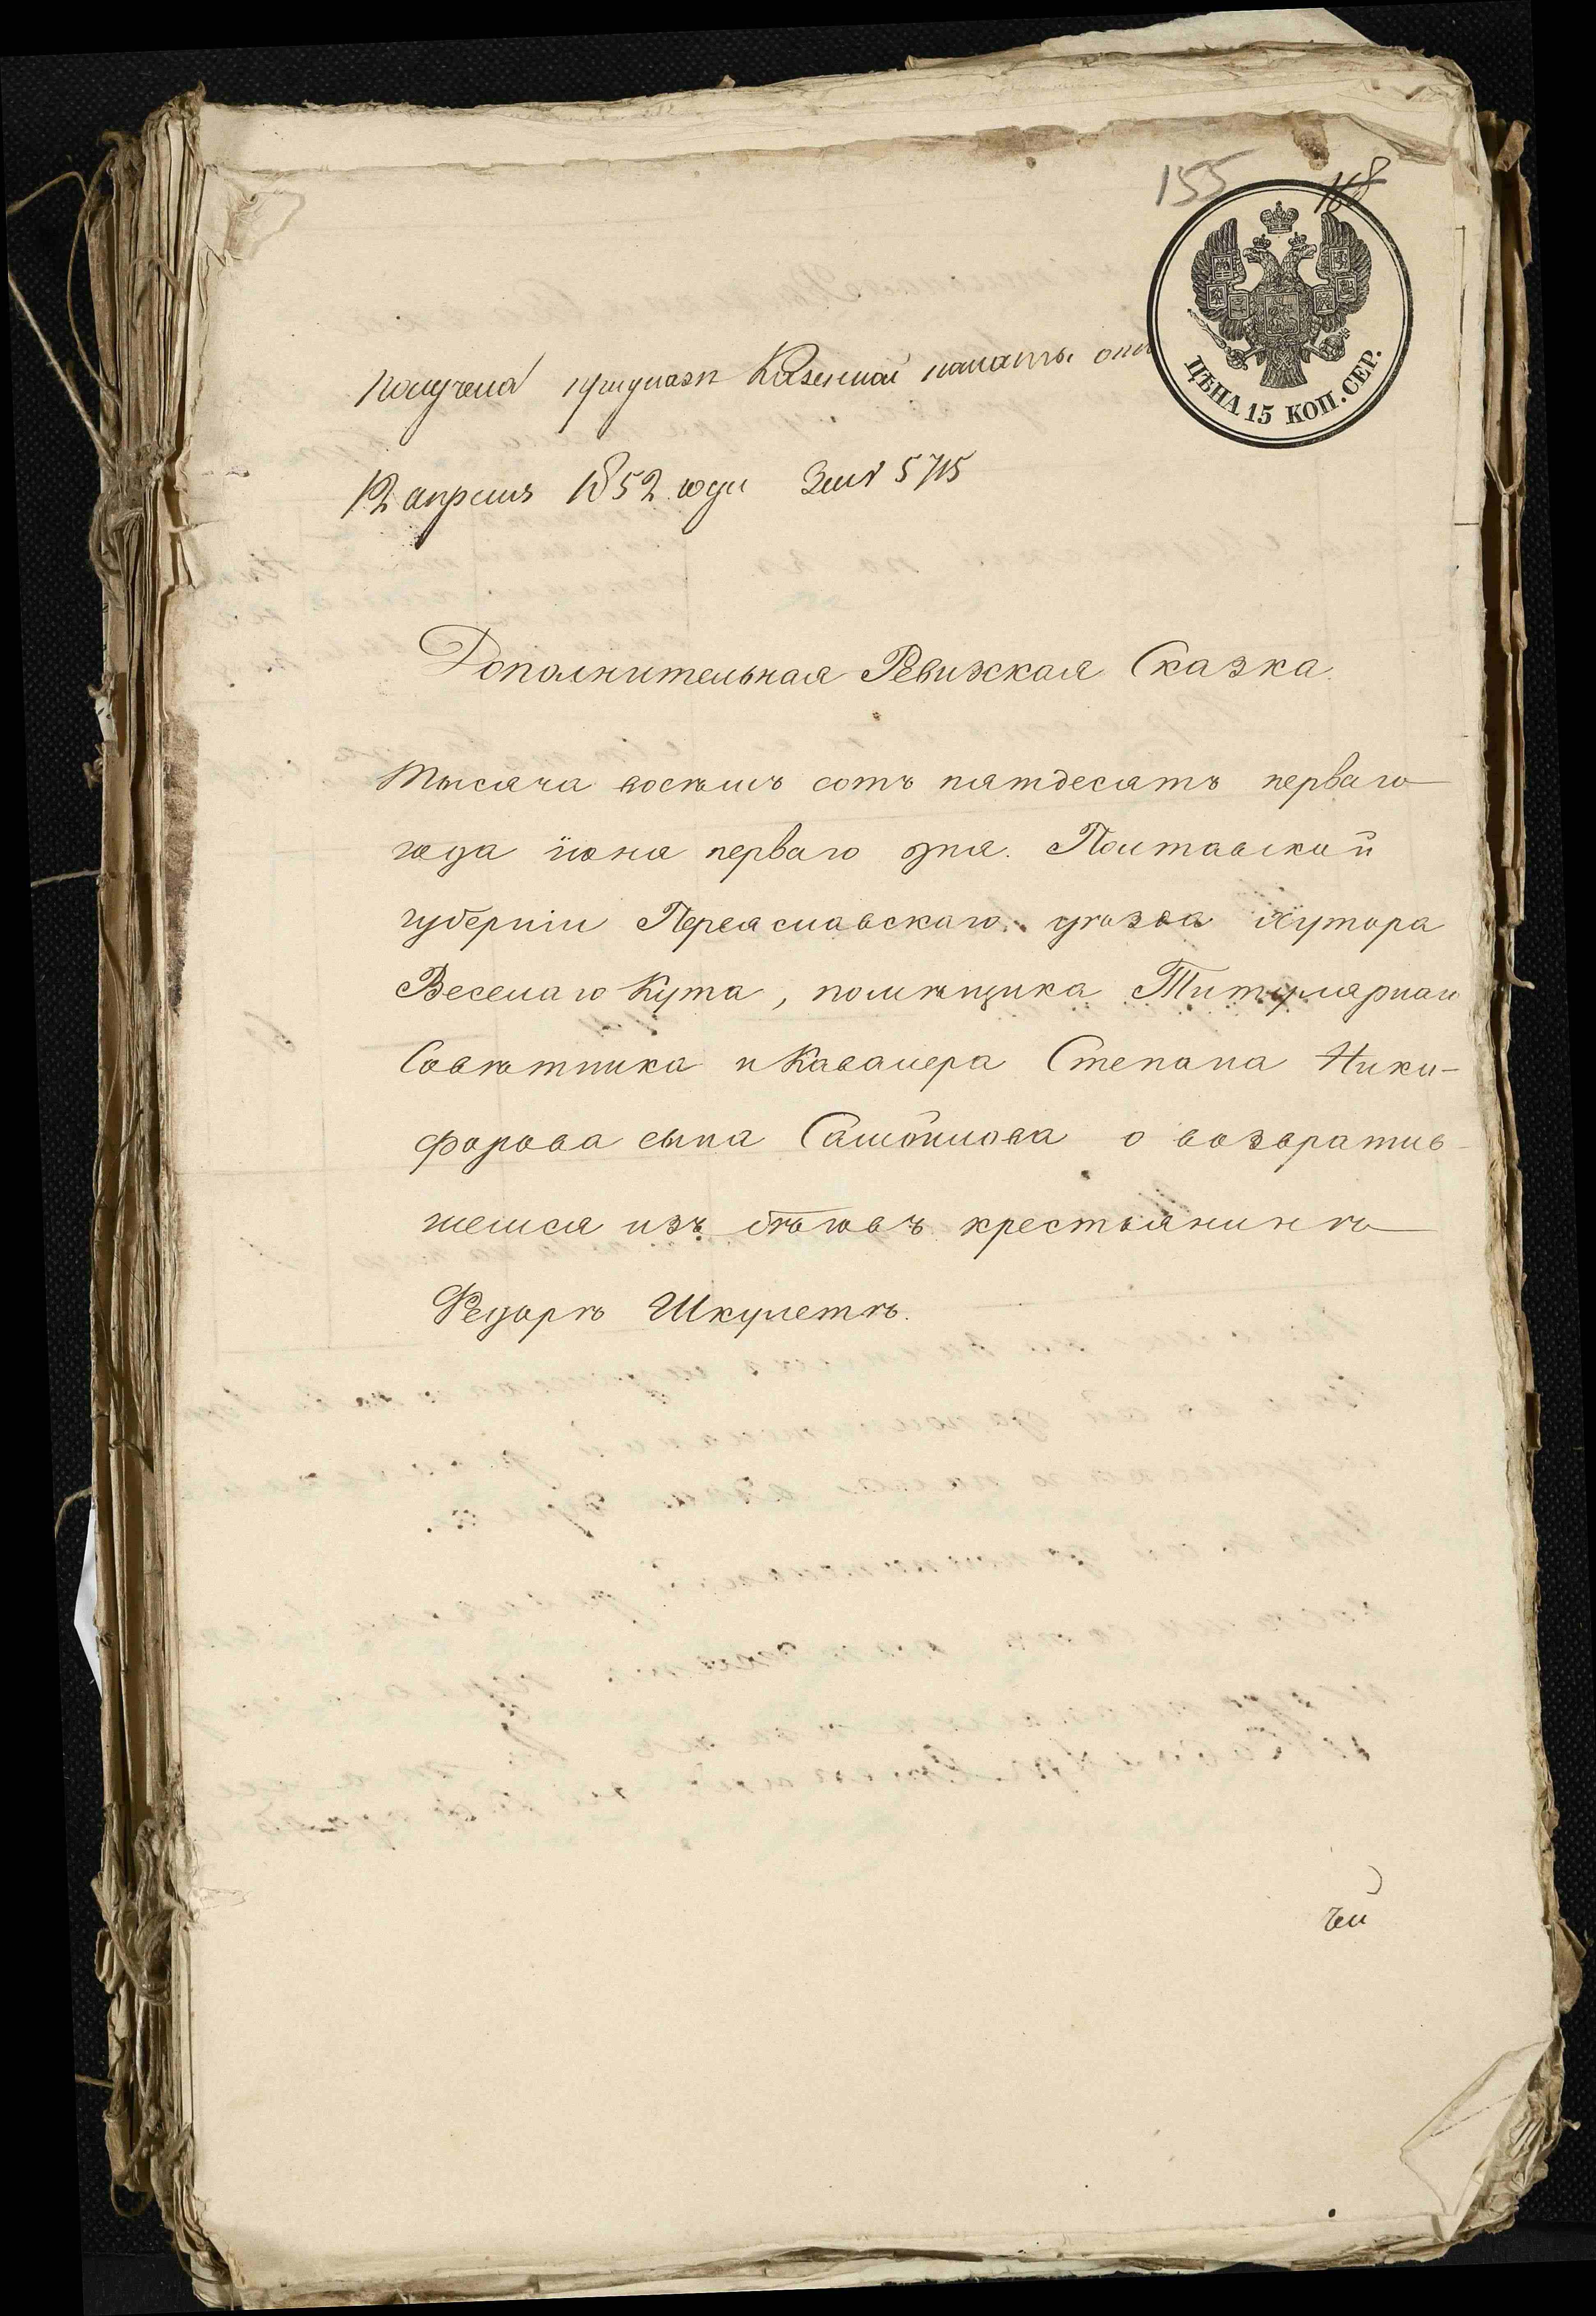 155 168
ЦѢНА 15 КОП. СЕР.
Получена при указѣ Казенной палаты отъ
12 апреля 1852 года За № 5715
Дополнительная Ревижская Сказка.
Тысяча восѣмъ сотъ пятдесятъ перваго
года іюня перваго дня. Полтавской
губерніи Переяславскаго уѣзда Хутора
Веселаго Кута, помѣщика Титулярнаго
Совѣтника и Кавалера Степана Ники-
форова сына Самойлова о возвратив-
шемся изъ бѣговъ крестьянинѣ
Федорѣ Шкулетѣ.